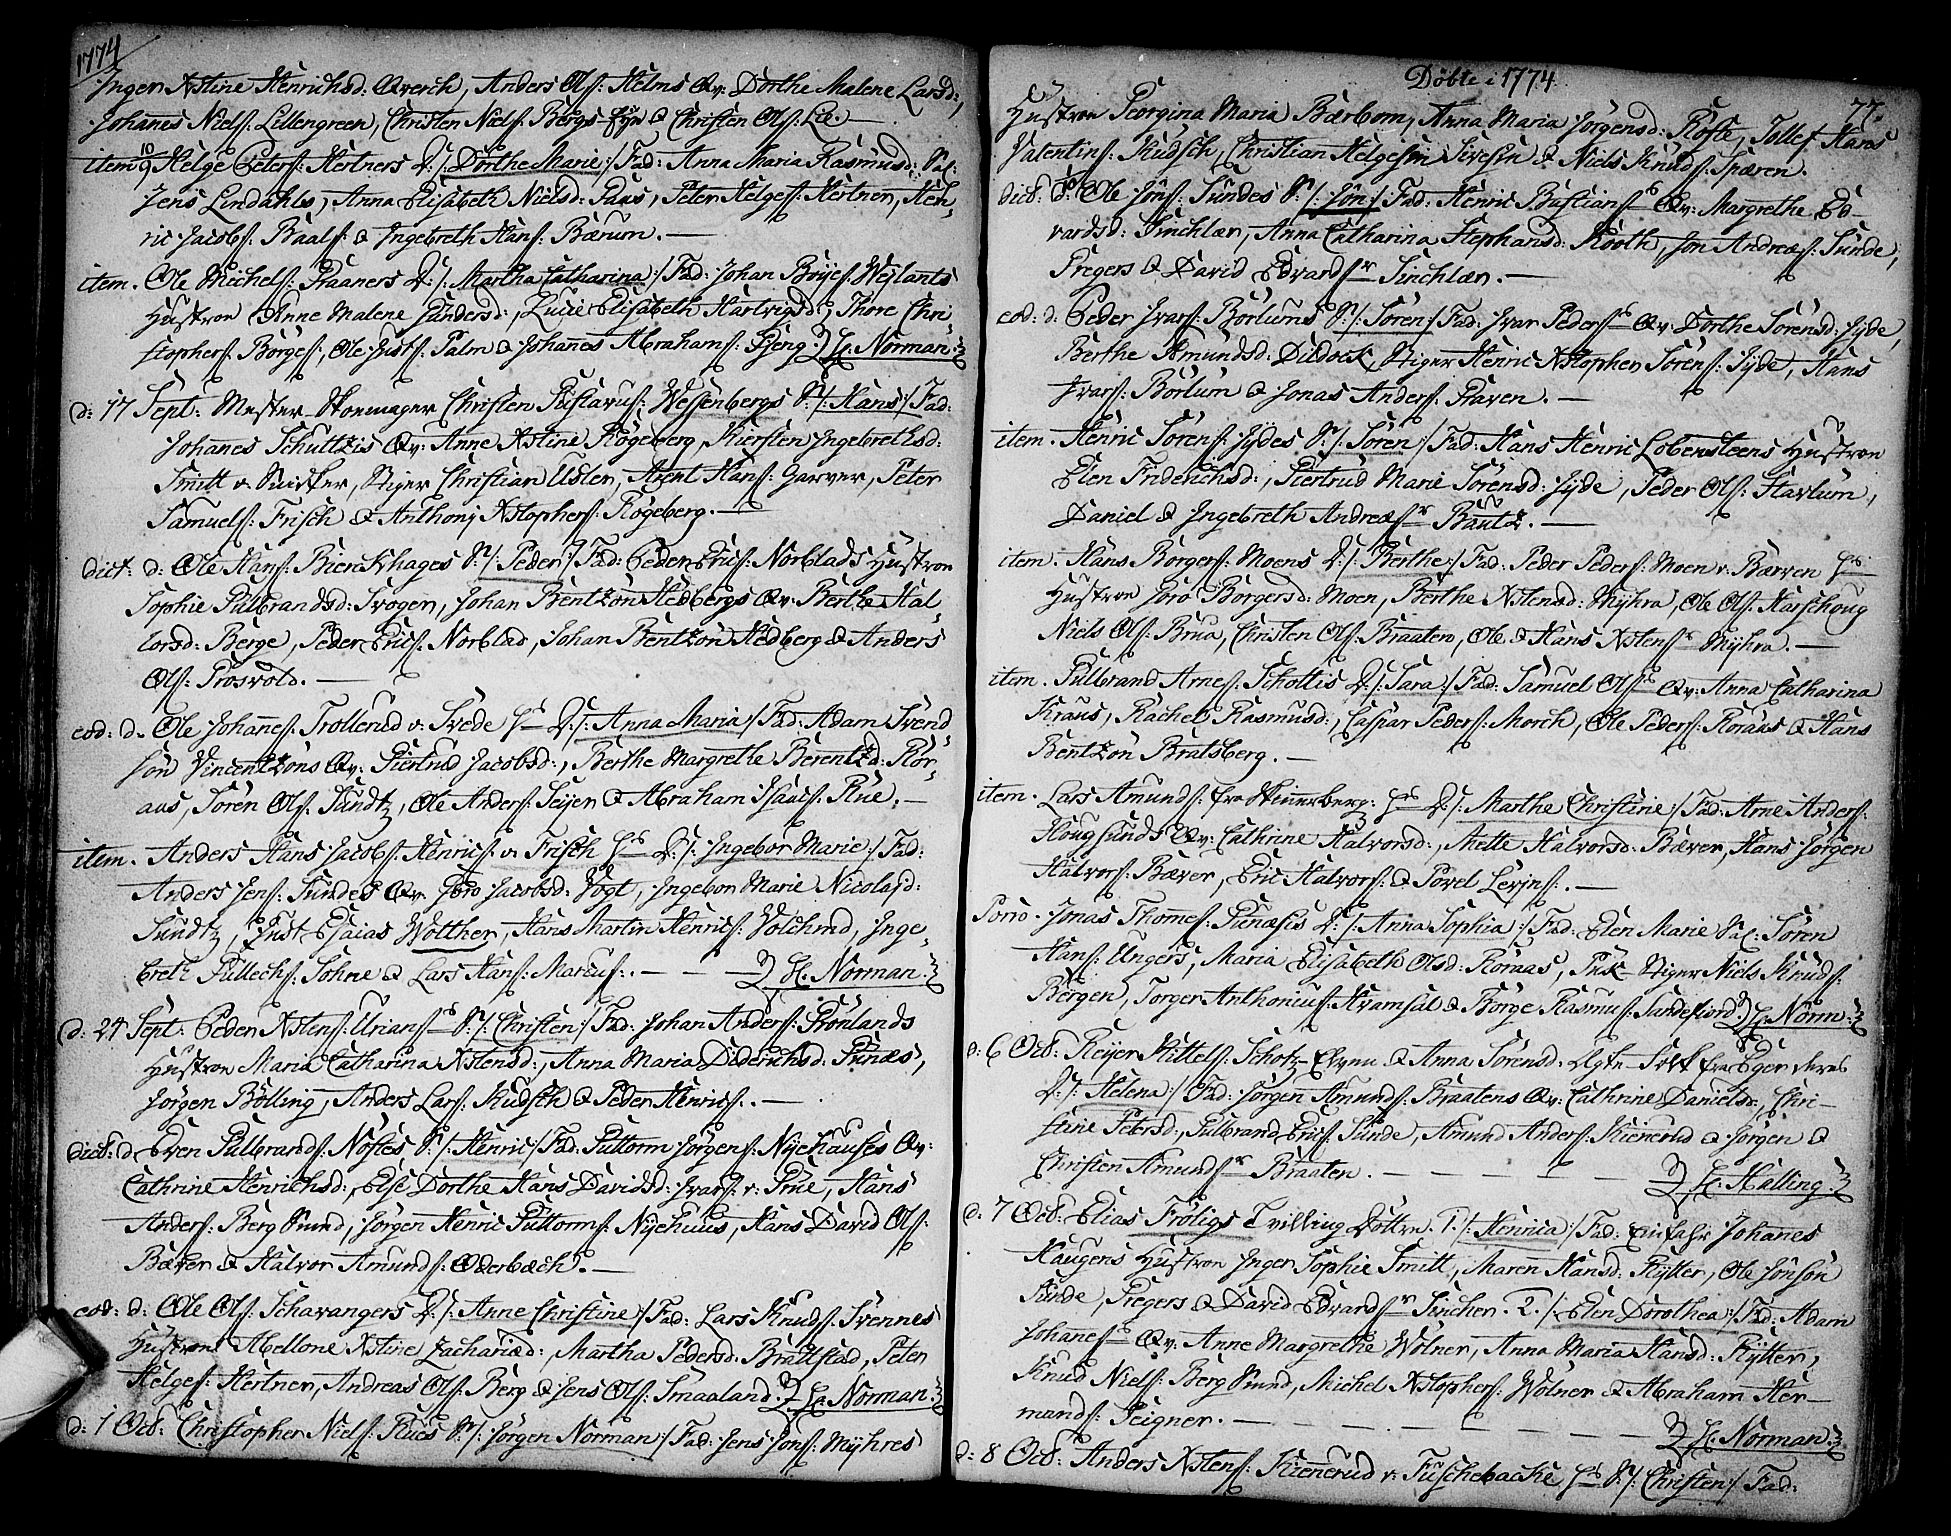 1774
Inger Xstine Henrichsd: Qverch, Anders Ols: Helms Qv: Dorthe Malene Larsd:,
Johanes Niels: Lillengreen, Christen Niels: Bergs & Christen Ols: Lie. —
item 10/9 Helge Peters: Hertners D: /: Dorthe Marie :/ Fad: Anna Maria Rasmusd: Sal:
Jens Lindahls, Anna Elisabeth Nielsd: Paus, Peter Helges: Hertner, Hen-
ric Jacobs: Baals: & Ingebreth Hans: Bærum. —
item. Ole Michels: Praaners D: /: Martha Catharina :/ Fad: Johan Böyes: Weylants
Hustroe Anne Malene Gundersd:, Lucie Elisabeth Hartvigsd:, Thore Chri-
stophers: Börges:, Ole Justs: Palm & Johannes Abrahams: Gjeng. H. Norman.
d: 17 Sept: Mester Skomager Christen Gustavus: Wessenbergs S: /: Hans :/ Fad:
Johanes Schultzis Qv: Anne Xstine Rögeberg, Kiersten Ingebrethsd:
Smitt v. Snicker, Stiger Christian Usler, Arent Hans: Garver, Peter
Samuels: Frisch & Anthonj Xstophers: Rögeberg. —
dict: d: Ole Hans: Bienckhages S: /: Peder :/ Fad: Peder Erics: Norblads Hustroe
Sophie Gulbrandsd: Svogen, Johan Bentzön Hedbergs Qv: Berthe Hal-
lorsd: Berge, Peder Erics: Norblad, Johan Bentzon Hedberg & Anders
Ols: Grosvold. —
eod: d. Ole Johanes: Trollerud v: Svede D: /: Anna Maria :/ Fad: Adam Svend
sön Vincentzöns Qv: Giertrud Jacobsd:, Berthe Margrethe Berentzd: Kor-
aus, Sören Ols: Sundtz, Ole Anders: Seijer & Abraham Isaacs: Rue. —
item. Anders Hans Jacobs: Henrics: v. Frisch D: /: Ingebor Marie :/ Fad:
Anders Jens: Sundes Qv: Joro Jacobsd: Vogt, Ingebor Marie Nicolajd:
Sundtz, Just Esaias Wolther, Hans Martin Henrics: Volchmd, Inge-
breth Gullechs: Sohne & Lars Hans: Marcus:. — — H. Norman.
d: 24 Sept: Peder Xstens: Urians: S: /: Christen :/ Fad: Johan Anders: Grönlands
Hustroe Maria Catharina Xstensd:, Anna Maria Diderichsd: Punæs,
Jörgen Bölling, Anders Lars: Kudsch & Peder Henrics:. —
dict: d. Even Gulbrands: Nöstes S: /: Henric :/ Fad: Guttorm Jörgens: Nyehauses Qv:
Cathrine Henrichsd:, Else Dorthe Hans Davidsd: Ivars: v: Grue, Hans
Anders: Berg Smed, Jörgen Henric Guttorms: Nyehuus, Hans David Ols:
Bæver & Halvor Amunds: Oderbæch. —
eod: d: Ole Ols: Schavangers D: /: Anne Christine :/ Fad: Lars Knuds: Svennes
Hustroe Abellone Xstine Zachariæd:, Martha Pedersd: Brattstad, Peter
Helges: Hertner, Andreas Ols: Berg & Jens Ols: Smaaland. H. Norman.
d: 1 Octb: Christopher Niels: Rues S: /: Jörgen Norman :/ Fad: Jens Jons: Myhres
Döbte i 1774
77.
Hustroe Georgina Maria Bærbom, Anna Maria Jörgensd: Röste, Tollef Hans
Valentins: Kudsch, Christian Helgesen Sivesen & Niels Knuds: Spæren.
dictb: d: Ole Jöns: Sundes S: /: Jön :/ Fad: Henric Bastians: Qv: Margrethe Ed-
vardsd: Sinchlær, Anna Catharina Stephansd: Kooth, Jon Andreæs: Sunde,
Gregers & David Edvards: Sinchlær. —
eod: d: Peder Ivars: Börlums S: /: Sören :/ Fad: Ivar Peders: Qv: Dorthe Sörensd: Jyde,
Berthe Amundsd: Dildock, Stiger Henric Xstopher Sörens: Jyde, Hans
Ivars: Börlum & Jonas Anders: Graven. —
item. Henric Sörens: Jydes S: /: Sören :/ Fad: Hans Henric Lobensteens Hustroe
Elen Friderichsd:, Giertrud Marie Sörensd: Jyde, Peder Ols: Stavlum,
Daniel & Ingebreth Andreæs: Bautz. —
item. Hans Börgers: Moens D: /: Berthe :/ Fad: Peder Peders: Moen v. Bærven
Hustroe Joro Börgersd: Moen, Berthe Xstensd: Myhra, Ole Ols: Harschoug
Niels Ols: Brua, Christen Ols: Braaten, Ole & Hans Xstens: Myhra. —
item. Gulbrand Arnes: Schottis D: /: Sara :/ Fad: Samuel Ols: Qv: Anna Catharina
Kraus, Rachel Rasmusd:, Caspar Peders: Morch, Ole Peders: Koraus & Hans
Bentzön Bratsberg. —
item. Lars Amunds: fra Skinnerberg: D: /: Marthe Christine :/ Fad: Arne Anders:
Hougsunds Qv: Cathrine Halvorsd:, Mette Halvorsd: Bæver, Hans Jörgen
Halvors: Bæver, Eric Halvors: & Povel Levins:. —
Porro. Jonas Thomes: Punæsis D: /: Anna Sophia :/ Fad: Elen Marie Sal: Sören
Hans: Ungers, Maria Elisabeth Olsd: Koraas, Stiger Niels Knuds:
Bergen, Torger Anthonius: Kvamsal & Börge Rasmus: Sandefiord. H. Norm:
d: 6 Octb: Reyer Kittels: Schotz & Anna Sörensd: Ægte Folk fra Eger deres
D: /: Helena :/ Fad: Jörgen Amunds: Braatens Qv: Cathrine Danielsd:, Chri-
stine Petersd:, Gulbrand Erics: Sunde, Amund Anders: Kienerud & Jörgen &
Christen Amunds: Braaten. — — — — H. Halling.
d: 7 Octb: Elias Fröligs Tvilling Döttre. 1. /: Henrica :/ Fad: Einfahr Johanes
Haugens Hustroe Inger Sophie Smitt, Maren Hansd: Rytter, Ole Jönsön
Sunde, Gregers & David Edvards: Sincher. 2. /: Elen Dorothea :/ Fad: Adam
Johanes: Qv: Anne Margrethe Wölner, Anna Maria Hansd: Rytter,
Knud Niels: Berg Smed, Michel Xstophers: Wölner & Abraham Her-
mands: Seigner. — — — — H. Norman.
d: 8 Octb: Anders Xstens: Kienerud v: Fuschebacke S: /: Christen :/ Fad: